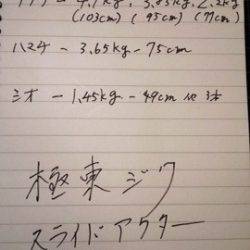 - 4.1kg, 3.85kg, 2.2kg
(103cm) (95cm) (77cm)
ハマチ - 3.65kg - 75cm
シオ - 1.45kg - 49cm 他3本
極東ジグ
スライドアクター